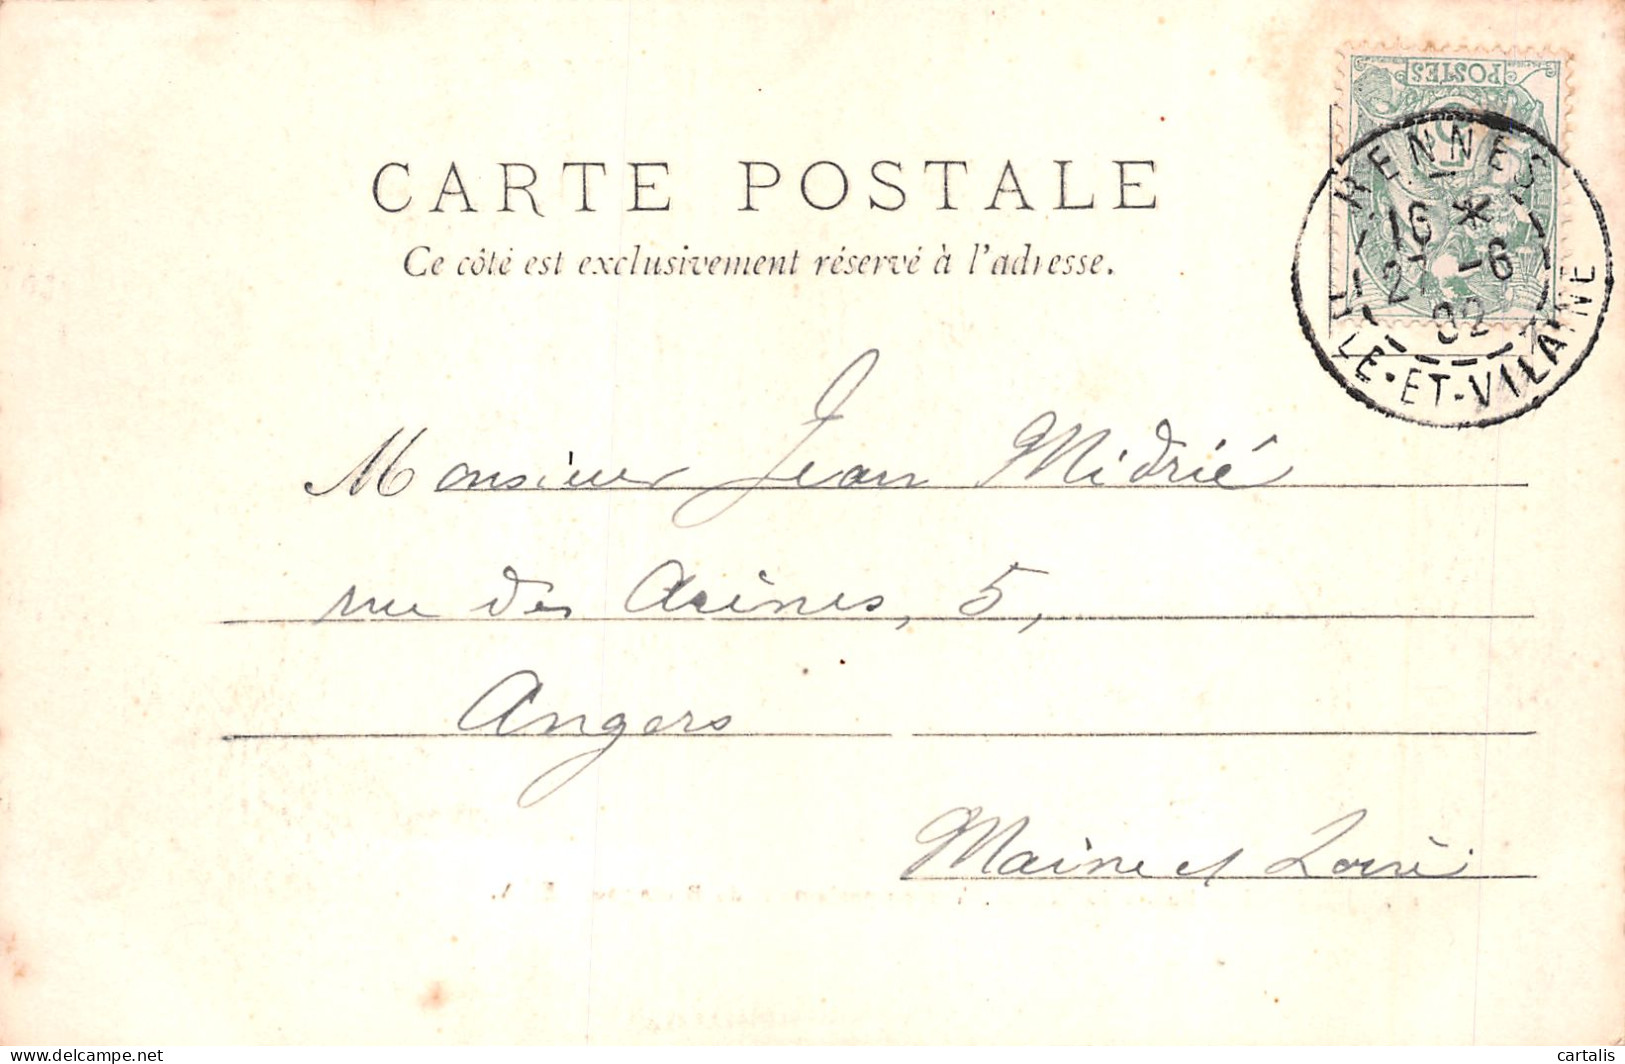 POSTES
RENNES
16 *
2 -6
02
ILLE-ET-VILAINE
CARTE POSTALE
Ce côté est exclusivement réservé à l'adresse.
Monsieur Jean Midrié
rue des Arènes, 5,
Angers
Maine et Loire
delcampe.net
cartalis